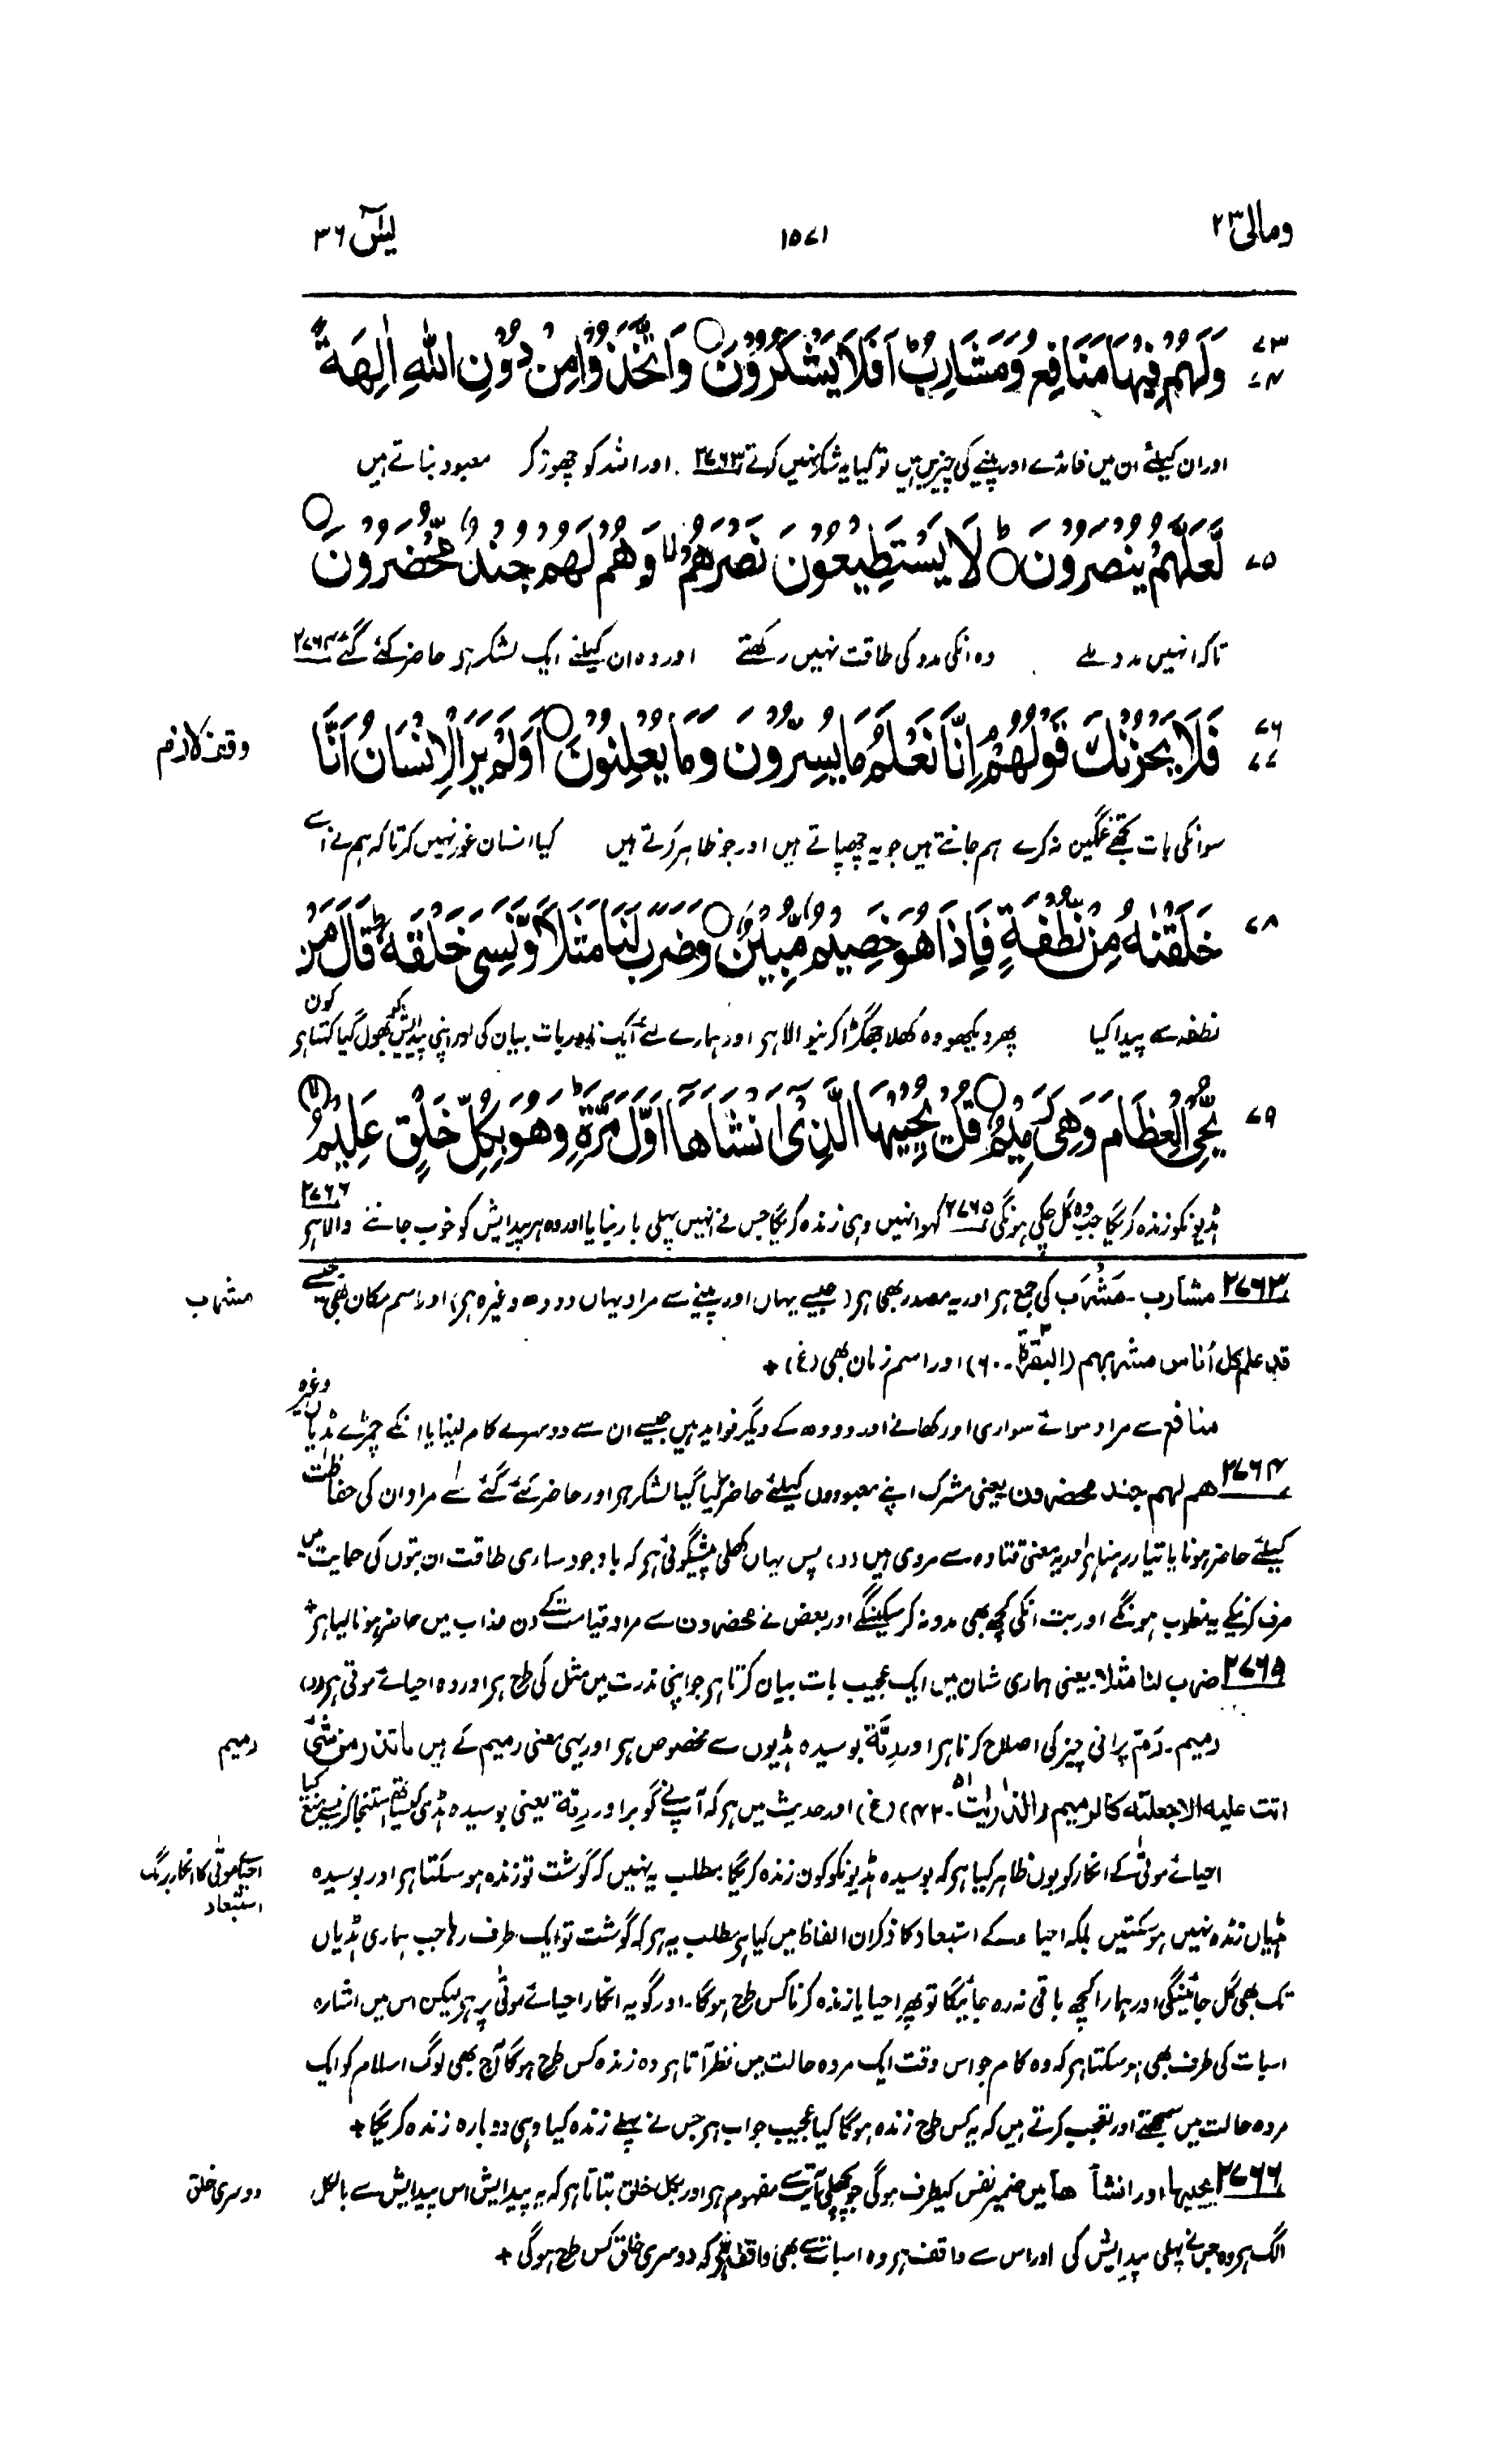 ومالی ۲۳
۱۵۷۱
یٰسٓ ۳۶
۷۳ وَلَهُمْ فِيْهَا مَنَافِعُ وَمَشَارِبُ ؕ اَفَلَا يَشْكُرُوْنَ ○ وَاتَّخَذُوْا مِنْ دُوْنِ اللّٰهِ اٰلِهَةً
۷۴
اور ان کیلئے ان میں فائدے اور پینے کی چیزیں ہیں تو کیا یہ شکر نہیں کرتے ۲۷۶۳ ۔ اور اللہ کو چھوڑ کر معبود بناتے ہیں
۷۵ لَّعَلَّهُمْ يُنْصَرُوْنَ ○ؕ لَا يَسْتَطِيْعُوْنَ نَصْرَهُمْ ۙ وَهُمْ لَهُمْ جُنْدٌ مُّحْضَرُوْنَ ○
تاکہ انہیں مدد ملے وہ انکی مدد کی طاقت نہیں رکھتے اور وہ ان کیلئے ایک لشکر ہر حاضر کئے گئے ۲۷۶۴
۷۶ فَلَا يَحْزُنْكَ قَوْلُهُمْ ۘ اِنَّا نَعْلَمُ مَا يُسِرُّوْنَ وَمَا يُعْلِنُوْنَ ○ اَوَلَمْ يَرَ الْاِنْسَانُ اَنَّا
۷۷
وقف لازم
سو انکی بات تجھے غمگین نہ کرے ہم جانتے ہیں جو یہ چھپاتے ہیں اور جو ظاہر کرتے ہیں کیا انسان غور نہیں کرتا کہ ہم نے اسے
۷۸ خَلَقْنٰهُ مِنْ نُّطْفَةٍ فَاِذَا هُوَ خَصِيْمٌ مُّبِيْنٌ ○ وَضَرَبَ لَنَا مَثَلًا وَّنَسِىَ خَلْقَهٗ ؕ قَالَ مَنْ
نطفہ سے پیدا کیا پھر دیکھو وہ کھلا جھگڑا کرنیوالا ہر اور ہمارے لئے ایک نادر بات بیان کی اور اپنی پیدایش کو بھول گیا کہتا ہر کون
۷۹ يُّحْىِ الْعِظَامَ وَهِىَ رَمِيْمٌ ○ قُلْ يُحْيِيْهَا الَّذِىْۤ اَنْشَاَهَاۤ اَوَّلَ مَرَّةٍ ؕ وَهُوَ بِكُلِّ خَلْقٍ عَلِيْمُ ○
ہڈیونکو زندہ کریگا جب وہ گل چکی ہونگی ۲۷۶۵ کہو انہیں وہی زندہ کریگا جس نے انہیں پہلی بار بنایا اور وہ ہر پیدایش کو خوب جاننے والا ہر ۲۷۶۶
۲۷۶۳ مشارب ۔ مَشْرَب کی جمع ہر اور یہ مصدر بھی ہر (جیسے یہاں اور پینے سے مراد یہاں دودھ وغیرہ ہر) اور اسم مکان بھی جیسے
مشرب
قد علم کل اُناس مشربهم (البقرۃ ۲ ۔ ۶۰) اور اسم زمان بھی (غ) +
منافع سے مراد سوائے سواری اور کھانے اور دودھ کے دیگر فواید ہیں جیسے ان سے دوسرے کام لینا یا انکے چمڑے ہڈیاں وغیرہ
۲۷۶۴ هم لهم جند محضرون یعنی مشرک اپنے معبودوں کیلئے حاضر کیا گیا لشکر ہر اور حاضر کئے گئے سے مراد ان کی حفاظت
کیلئے حاضر ہونا یا تیار رہنا ہر اور یہ معنی قتادہ سے مروی ہیں (د) ، پس یہاں کھلی پیشگوئی ہر کہ باوجود ساری طاقت ان بتوں کی حمایت میں
صرف کرنیکے یہ مغلوب ہونگے اور بت انکی کچھ بھی مدد نہ کر سکینگے اور بعض نے محضرون سے مراد قیامت کے دن عذاب میں حاضر ہونا لیا ہر +
۲۷۶۵ ضرب لنا مثلا یعنی ہماری شان میں ایک عجیب بات بیان کرتا ہر جو اپنی ندرت میں مثل کی طرح ہر اور وہ احیائے موتی ہر (ر)
رمیم ۔ رَمّ پرانی چیز کی اصلاح کرنا ہر اور رِمَّة بوسیدہ ہڈیوں سے مخصوص ہر اور یہی معنی رمیم کے ہیں ما تذر من شئ
رمیم
اتت علیه الا جعلته کالرمیم (الذاریات ۵۱ ۔ ۴۲) (غ) اور حدیث میں ہر کہ آپ نے گوبر اور رِمّة یعنی بوسیدہ ہڈی کیساتھ استنجا کرنیسے منع کیا
احیائے موتٰی کے انکار کو یوں ظاہر کیا ہر کہ بوسیدہ ہڈیونکو کون زندہ کریگا مطلب یہ نہیں کہ گوشت تو زندہ ہو سکتا ہر اور بوسیدہ
احیائے موتٰی کا انکار برنگ
استبعاد
ہڈیاں زندہ نہیں ہو سکتیں بلکہ احیاء کے استبعاد کا ذکر ان الفاظ میں کیا ہر مطلب یہ ہر کہ گوشت تو ایک طرف رہا جب ہماری ہڈیاں
تک بھی گل جائینگی اور ہمارا کچھ باقی نہ رہ جائیگا تو پھر احیا یا زندہ کرنا کس طرح ہوگا ۔ اور گو یہ انکار احیائے موتٰی پر ہر لیکن اس میں اشارہ
اسبات کی طرف بھی ہو سکتا ہر کہ وہ کام جو اس وقت ایک مردہ حالت میں نظر آتا ہر وہ زندہ کس طرح ہوگا آج بھی لوگ اسلام کو ایک
مردہ حالت میں سمجھتے اور تعجب کرتے ہیں کہ یہ کس طرح زندہ ہوگا کیا عجیب جواب ہر جس نے پہلے زندہ کیا وہی دوبارہ زندہ کریگا +
۲۷۶۶ یحییها اور انشأها میں ضمیر نفس کیطرف ہوگی جو پچھلی آیت سے مفہوم ہر اور بکل خلق بتاتا ہر کہ یہ پیدایش اس پیدایش سے بالکل
دوسری خلق
الگ ہر وہ جس نے پہلی پیدایش کی اور اس سے واقف ہر وہ اسبات سے بھی واقف ہر کہ دوسری خلق کس طرح ہوگی +